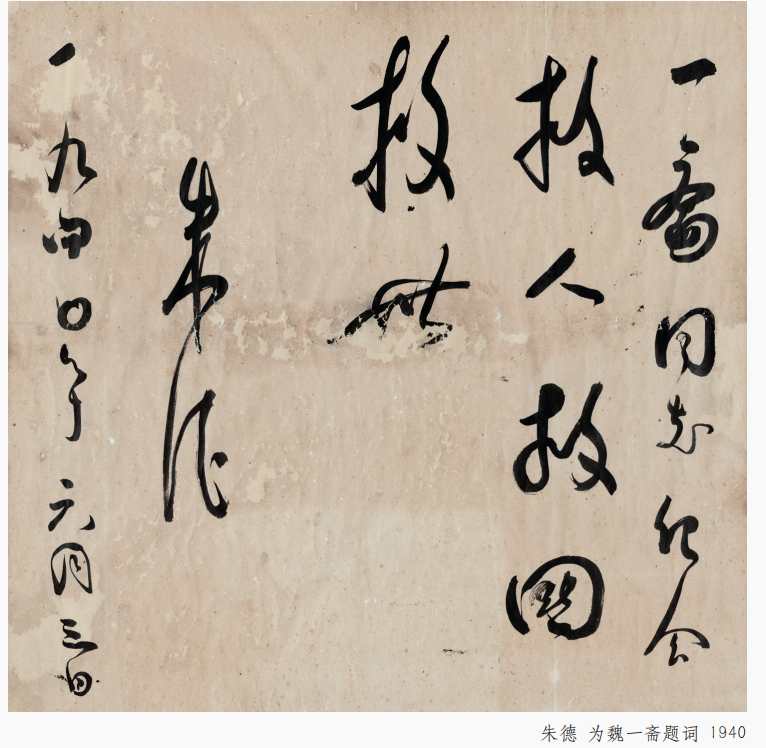 一斋同志纪念
救人救国
救世
朱德
一九四〇年六月三日
朱德 为魏一斋题词 1940